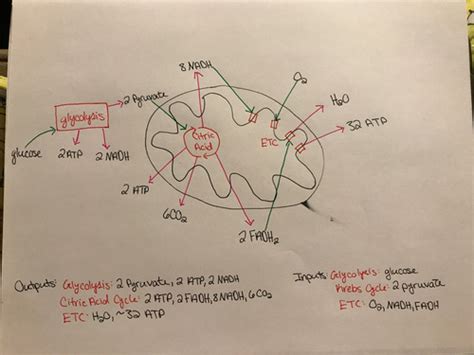 8 NADH
O2
2 Pyruvate
H2O
glycolysis
32 ATP
Citric
Acid
ETC
glucose
2 ATP
2 NADH
2 ATP
6CO2
2 FADH2
Outputs: Glycolysis: 2 Pyruvate, 2 ATP, 2 NADH
Citric Acid Cycle: 2 ATP, 2 FADH, 8 NADH, 6 CO2
ETC: H2O, ~32 ATP
Inputs: Glycolysis: glucose
Krebs Cycle: 2 pyruvate
ETC: O2, NADH, FADH